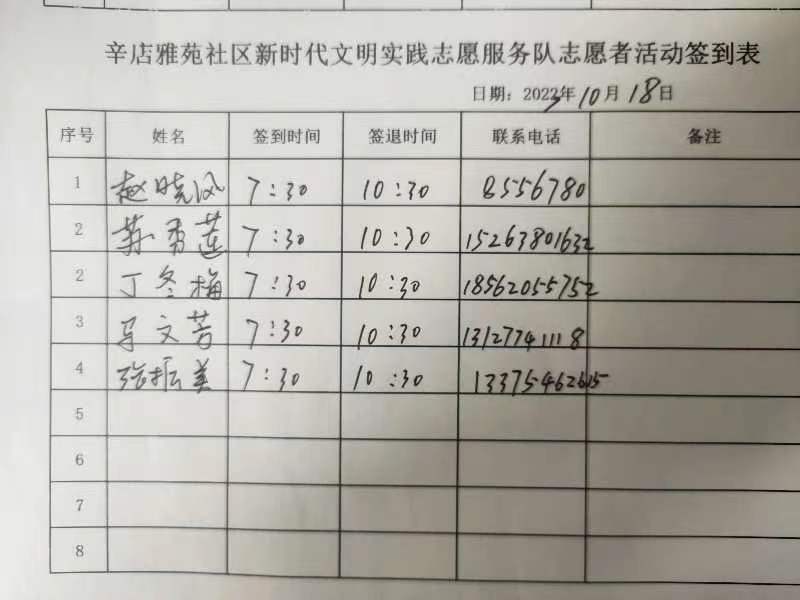 辛店雅苑社区新时代文明实践志愿服务队志愿者活动签到表
日期：2023年10月18日
序号 姓名 签到时间 签退时间 联系电话 备注
1 赵晓风 7:30 10:30 8556780
2 苏秀莲 7:30 10:30 15263801632
2 丁冬梅 7:30 10:30 18562055752
3 马文芳 7:30 10:30 13127741118
4 张振美 7:30 10:30
5
6
7
8